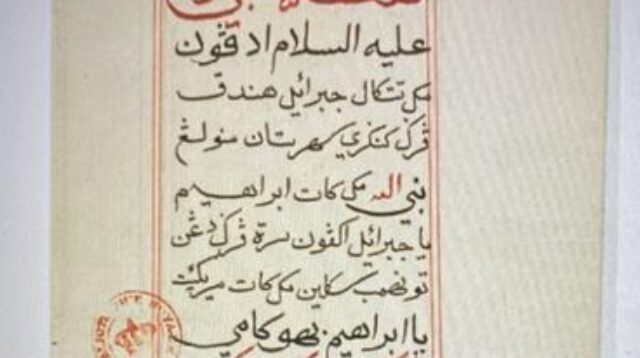 عليه السلام ادڤون
مک تتکال جبرائيل هندق
ڤرک کنکري شهرستان منولڠ
نبي الله مک کات ابراهيم
يا جبرائيل اکڤون سرة ڤرک دڠن
تونهمب سکلين مک کات مريکئت
يا ابراهيم بهو کامي